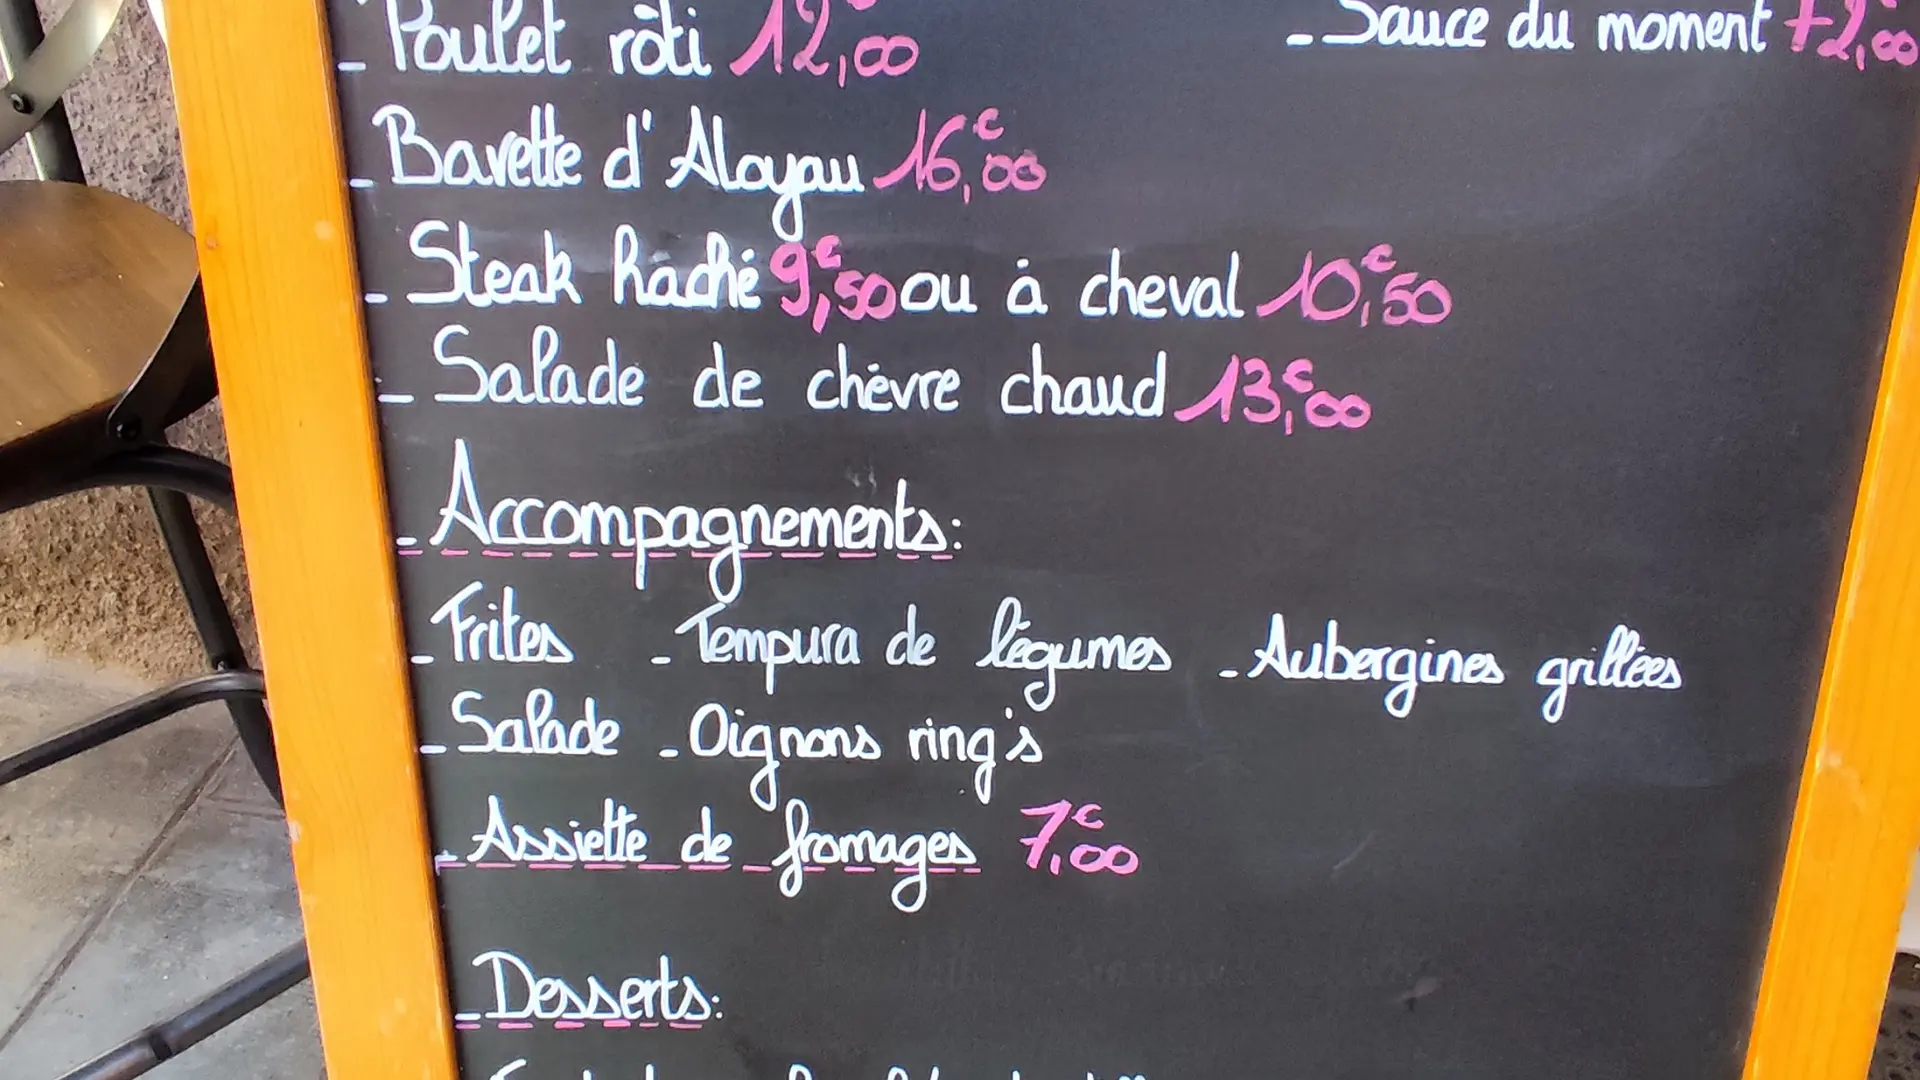 - Poulet rôti 12,€00 - Sauce du moment +2,€00
- Bavette d'Aloyau 16,€00
- Steak haché 9,€50 ou à cheval 10,€50
- Salade de chèvre chaud 13,€00
- Accompagnements:
- Frites - Tempura de légumes - Aubergines grillées
- Salade - Oignons ring's
- Assiette de fromages 7,€00
- Desserts: